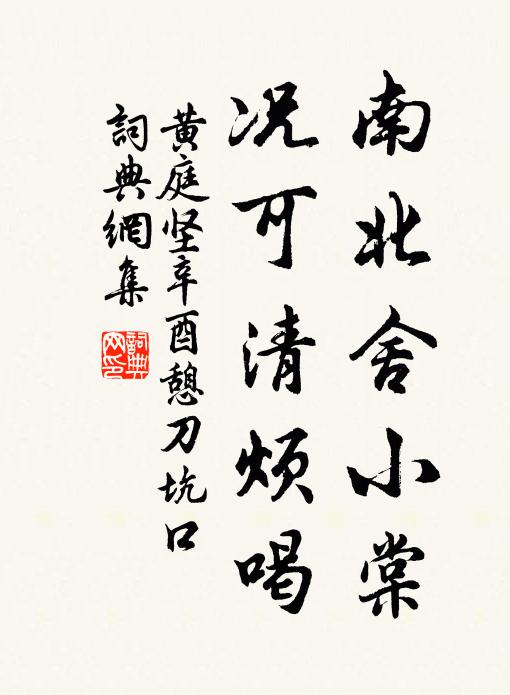 南北舍小棠
况可清烦喝
黄庭坚辛酉憩刀坑口
詞典網集
詞典网印